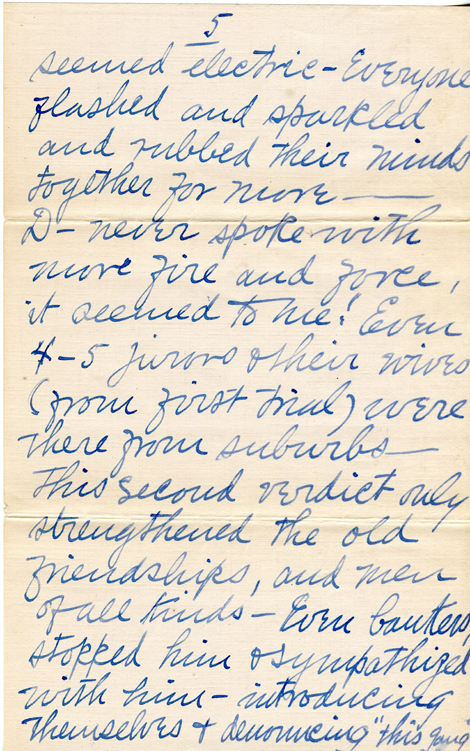 5
seemed electric – Everyone
flashed and sparkled
and rubbed their minds
together for more —
D – never spoke with
more fire and force,
it seemed to me! Even
4–5 jurors & their wives
(from first trial) were
there from suburbs —
This second verdict only
strengthened the old
friendships, and men
of all kinds – Even bankers
stopped him & sympathized
with him – introducing
themselves & denouncing "this gang